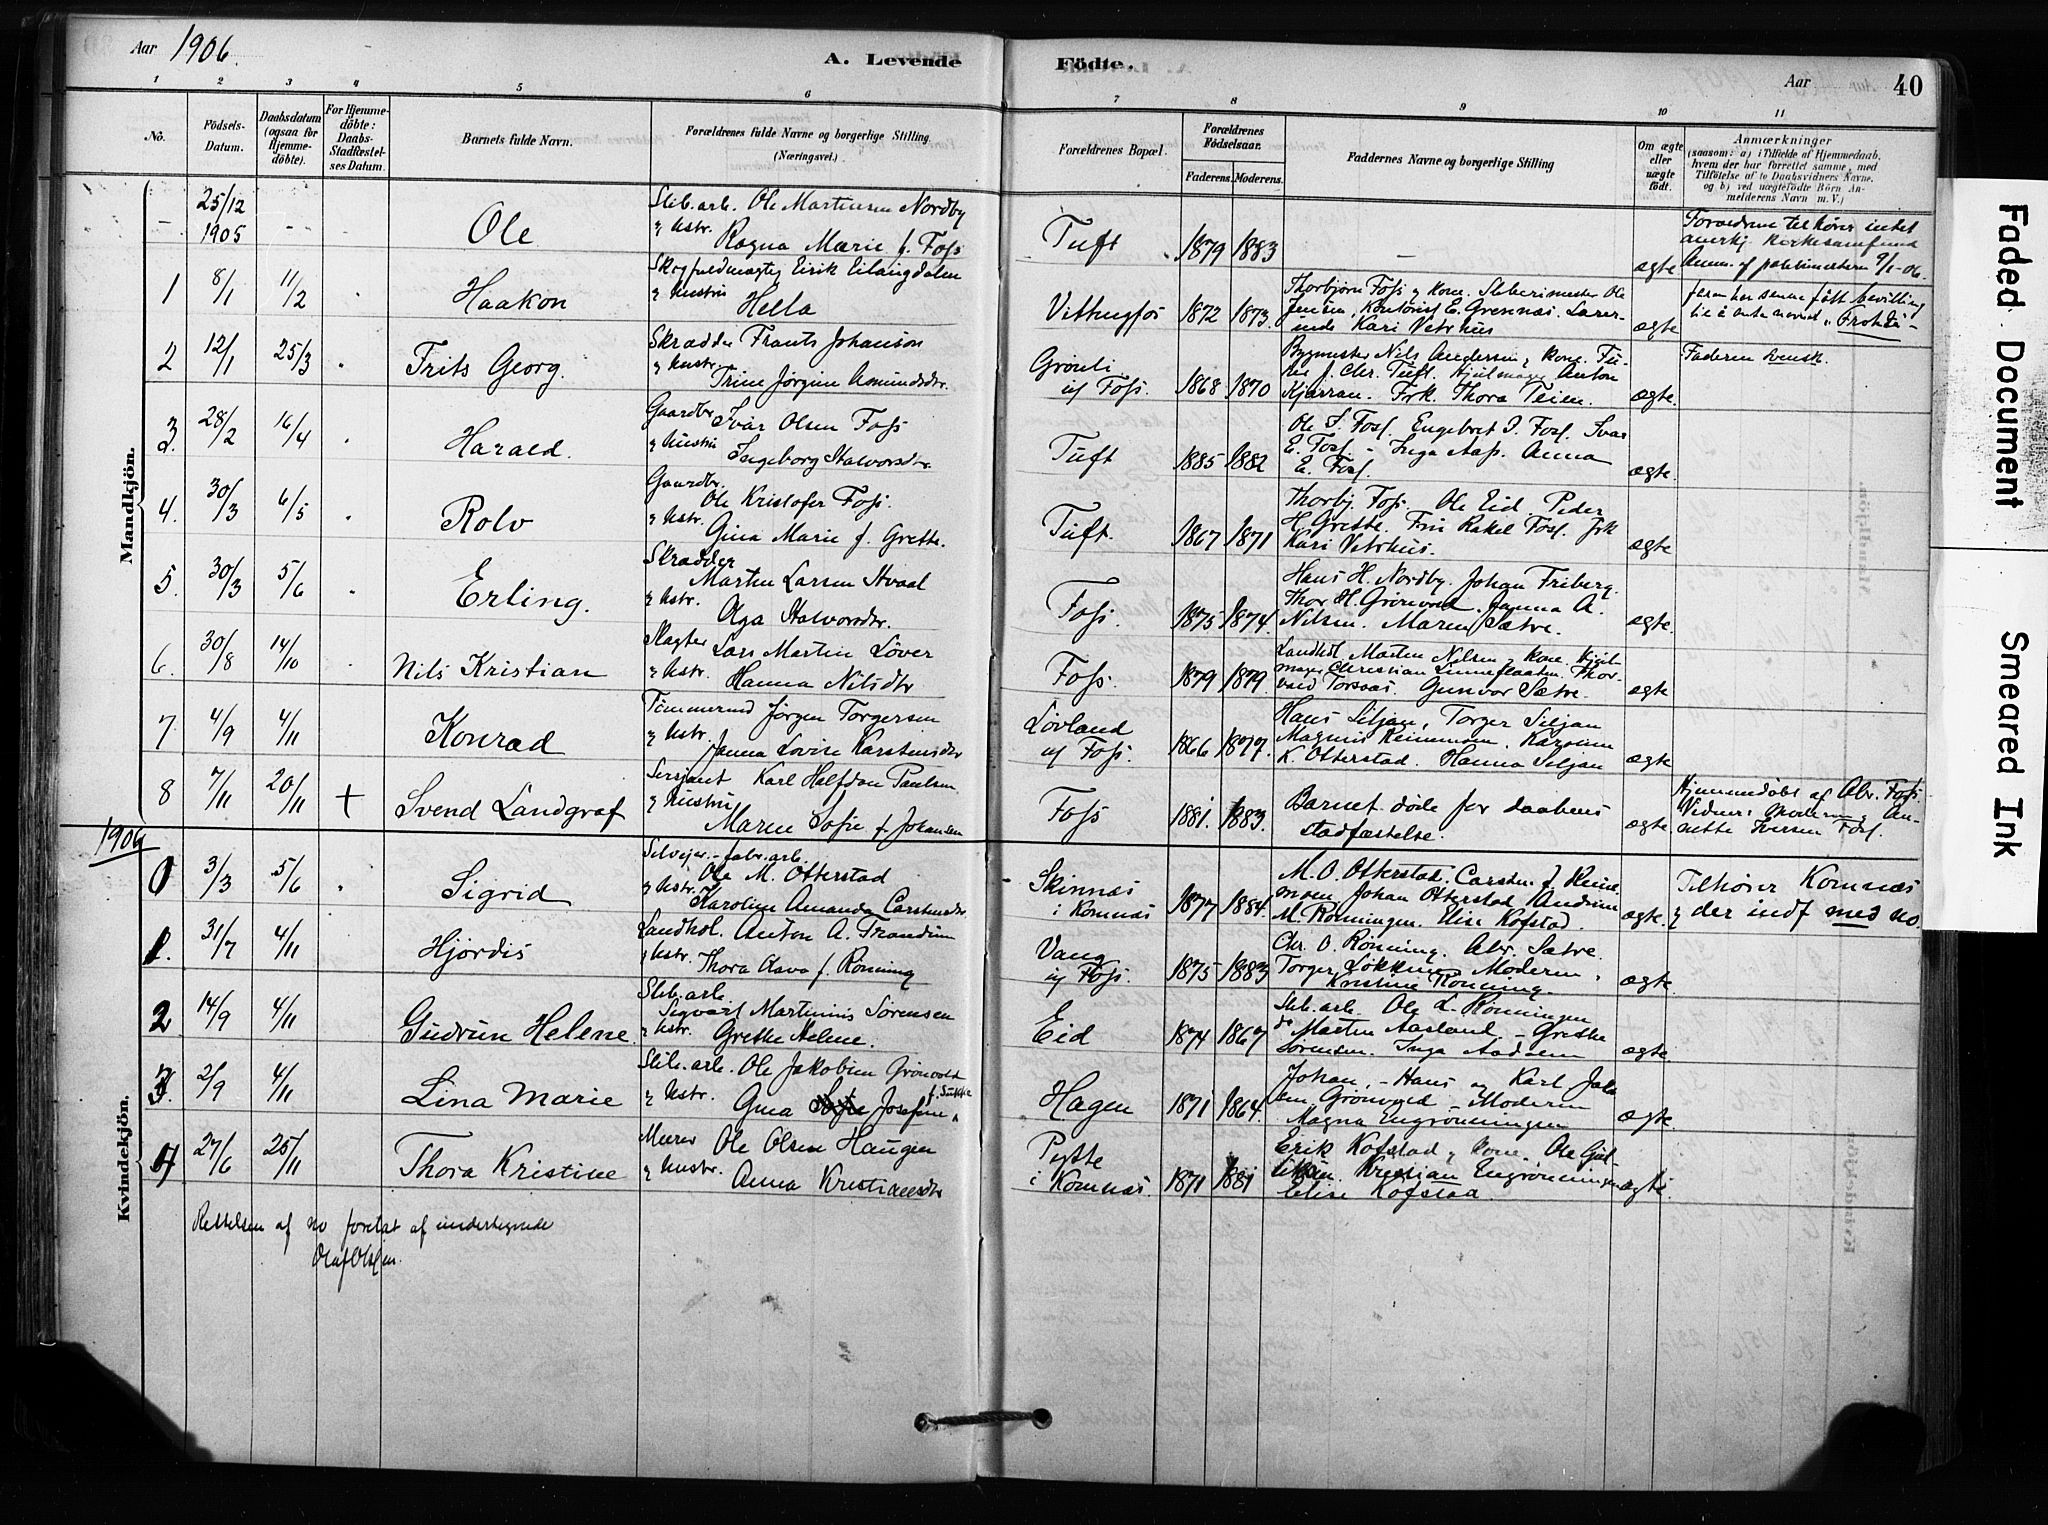 Aar 1906.
A. Levende Födte.
Aar 40
1 2 3 4 5 6 7 8 9 10 11
No.
Födsels-Datum.
Daabsdatum (ogsaa for Hjemmedöbte).
For Hjemmedöbte: Daabs-Stadfæstelses Datum.
Barnets fulde Navn.
Forældrenes fulde Navne og borgerlige Stilling. (Næringsvei.)
Forældrenes Bopæl.
Forældrenes Födselsaar.
Faderens. Moderens.
Faddernes Navne og borgerlige Stilling
Om ægte eller uægte födt.
Anmærkninger
(saasom: a) i Tilfælde af Hjemmedaab,
hvem der har forrettet samme, med
Tilföielse af to Daabsvidners Navne.
og b) ved uægtefödte Börn An-
melderens Navn m. V.)
Mandkjön.
– 25/12 1905 – – Ole
Slib.arb. Ole Martinsen Nordby
& hstr. Ragna Marie f. Foss
Tuft 1879 1883 – ægte
Forældrene tilhører intet
anerkj. kirkesamfund
Anm. af politimesteren 9/1-06.
1 8/1 11/2 Haakon
Skogfuldmægtig Eirik
& hustru Hella
Vittingfos 1872 1873.
Thorbjørn Foss & kone. Sliberimester Ole
Jensen, Kontorist E. Gresnæs. Lærer-
inde Kari Vetrhus
ægte
2 12/1 25/3 Frits Georg.
Skrædder Frants Johanson
& hustr. Trine Jørgine Amundsdtr.
Grönli u/ Foss. 1868 1870
Bygmester Nils Andersen & kone. Tu-
f. Chr. Tuft. Hjulmager Anton
Kjærran. Frk. Thora Teien.
ægte.
Faderen svensk.
3. 28/2 16/4 Harald.
Gaardbr. Ivar Olsen Foss
& hustru Ingeborg Halvorsdtr.
Tuft 1885 1882
Ole I. Foss. Engebret I. Foss. Ivar
E. Foss – Inga Aas. Anna
E. Foss.
ægte.
4. 30/3 6/5 Rolv
Gaardbr. Ole Kristofer Foss.
& hstr. Gina Marie f. Grette.
Tuft. 1867 1871
Thorbj. Foss. Ole Eid. Peder
H. Grette. Fru Rakel Foss. Frk
Kari Vetrhus.
ægte
5. 30/3 5/6 Erling.
Skrædder Marten Larsen Hvaal
& hstr. Olga Halvorsdtr.
Foss. 1875 1874.
Hans H. Nordby. Johan Friberg.
Thor H. Grönvold. Janna A.
Nilsen. Maren Sætre.
ægte.
6. 30/8 14/10 Nils Kristian
Slagter Lars Martin Löver
& hstr. Hanna Nilsdtr
Foss. 1879 1879.
Landhdl. Marten Nilsen & kone. Hjul-
mager Christian Linneflaaten. Thor-
vald Torsnæs. Gunvor Sætre.
ægte
7 4/9 4/11 Konrad
Tömmermd Jörgen Torgersen
& hstr. Janna Lovise Karstensdtr
Lövland u/ Foss. 1866 1877.
Hans Siljan, Torger Siljan
Magnus Reinemoen. Karoline
K. Otterstad. Hanna Siljan
ægte
8 7/11 20/11 + Svend Landgraf
Sersjant Karl Halfdan Paulsen
& hustru Maren Sofie f. Johansen
Foss 1881. 1883.
Barnet döde før daabens
stadfæstelse.
ægte
Hjemmedöbt af Abr. Foss.
Vidner: Moderen & An-
nette Iversen Foss.
1906
Kvindekjön.
0 3/3 5/6 Sigrid
Selveier-fabr.arb. Ole M. Otterstad
& hstr. Karoline Amanda Carstensdtr
Skinnæs i Komnæs 1877 1884.
M. O. Otterstad. Carsten J. Reine-
moen. Johan Otterstad
M. Rönningen. Elise Kofstad.
ægte.
Tilhører Komnæs
& der indf med no.
1. 31/7 4/11 Hjördis
Landhdl. Anton A. Trandum
& hstr. Thora Olava f. Rönning
Vang u/ Foss. 1875 1883
Chr. O. Rönning. Abr. Sætre.
Torger Lökkin. Moderen.
Kristine Rönning.
ægte.
2 14/9 4/11 Gudrun Helene.
Slib.arb. Sigvart Martinius Sörensen
& hstr. Grethe Helene.
Eid 1874 1867
Slib.arb. Ole L. Rönningen
do Marten Aasland – Grethe
Sörensen. Inga Aadsen
ægte.
3. 2/9 4/11 Lina Marie
Slib.arb. Ole Jakobsen Grönvold
& hstr. Gina Josefine f.
Hagen 1871 1864.
Johan, – Hans og Karl Jakob-
sen Grönvold – Moderen
Magna Engrönningen
ægte.
4 27/6 25/11 Thora Kristine
Murer Ole Olsen Haugen
& hustr. Anna Kristiansdtr
Pytte i Komnæs. 1871 1881
Erik Kofstad & kone. Ole Gul-
liksen. Kristian Engrönningen
Elise Kofstad.
ægte.
Rettelsen af no foretat af undertegnede
Olaf Olsen.
Faded Document
Smeared Ink